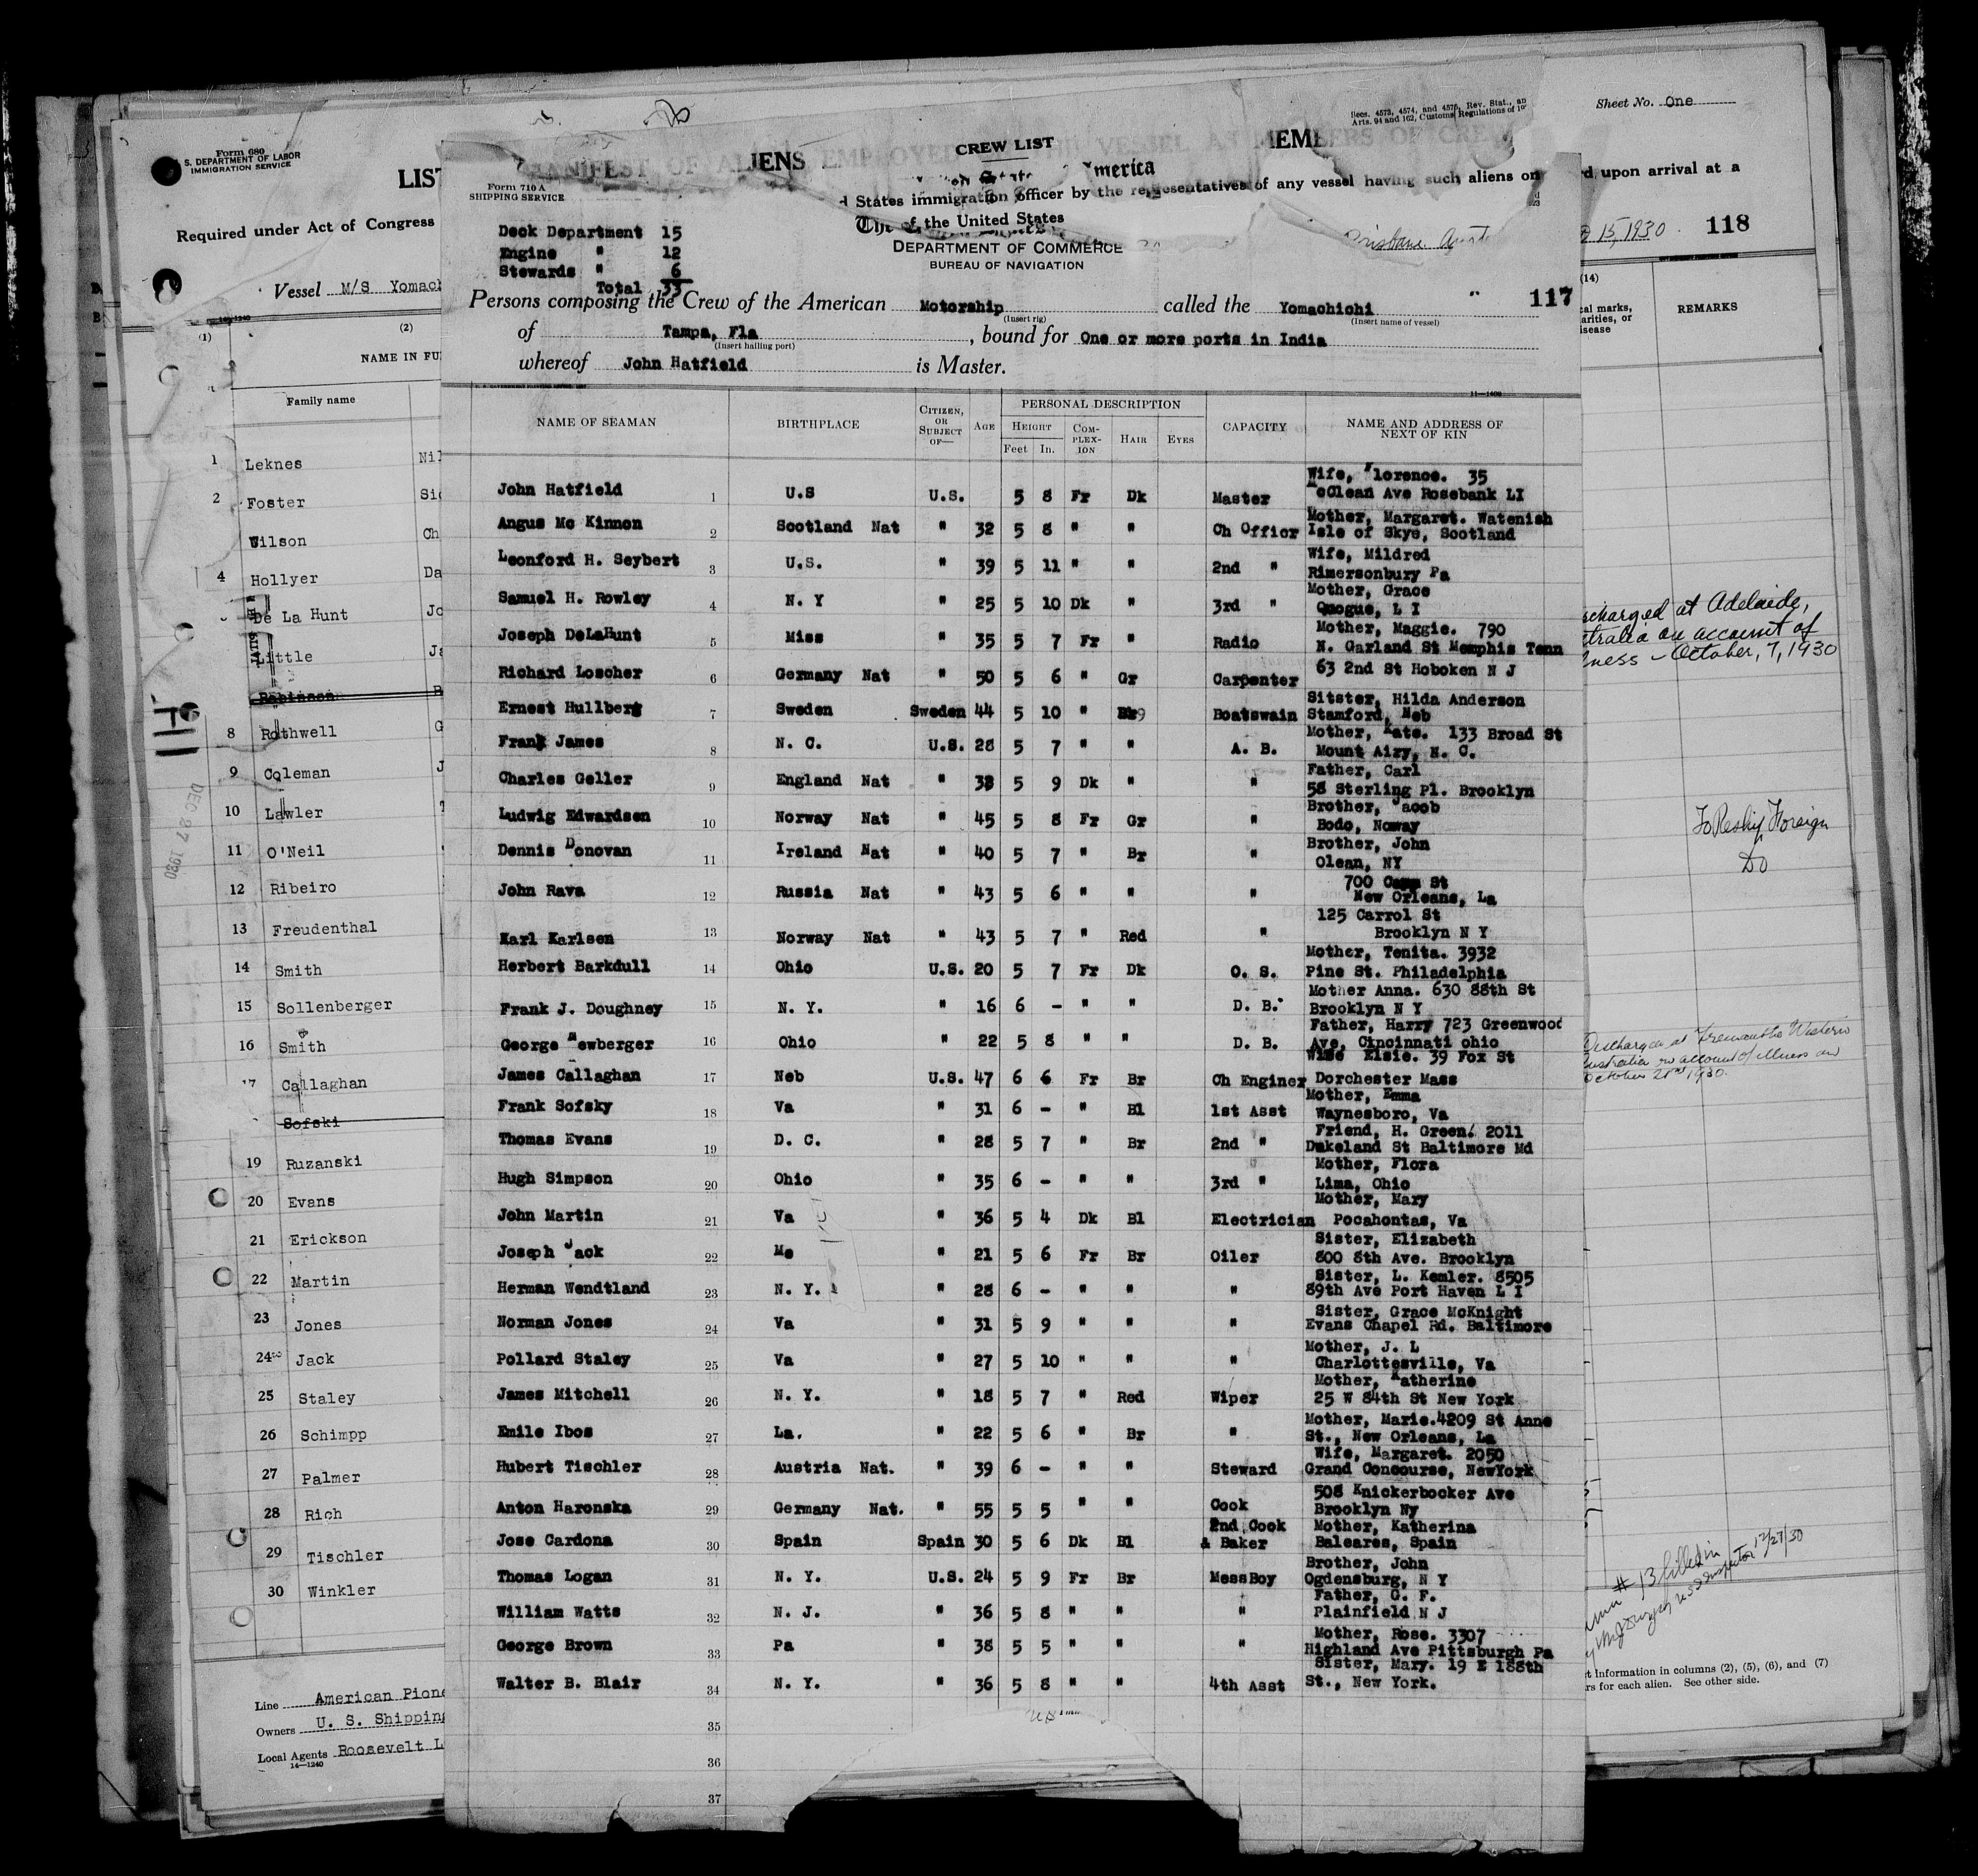 Form 680
S. DEPARTMENT OF LABOR
IMMIGRATION SERVICE
LIST
Required under Act of Congress
Vessel M/S Yomach
(1) (2)
NAME IN FU
Family name
1 Leknes Nil
2 Foster Sid
Wilson Ch
4 Hollyer Da
De La Hunt Jo
Little Ja
Robinson
8 Rothwell G
9 Coleman J
10 Lawler
11 O'Neil
12 Ribeiro
13 Freudenthal
14 Smith
15 Sollenberger
16 Smith
17 Callaghan
Sofski
19 Ruzanski
20 Evans
21 Erickson
22 Martin
23 Jones
24 Jack
25 Staley
26 Schimpp
27 Palmer
28 Rich
29 Tischler
30 Winkler
Line American Pione
Owners U. S. Shipping
Local Agents Roosevelt L
14—1240
DEC 27 1930
MANIFEST OF ALIENS EMPLOYED VESSEL AS MEMBERS OF CREW
CREW LIST
Secs. 4573, 4574, and 4575, Rev. Stat., an
Arts. 94 and 162, Customs Regulations of 19
Form 710 A
SHIPPING SERVICE
merica
d States immigration officer by the representatives of any vessel having such aliens on
of the United States
DEPARTMENT OF COMMERCE
BUREAU OF NAVIGATION
Brisbane
Deck Department 15
Engine " 12
Stewards " 6
Total 33
117
Persons composing the Crew of the American Motorship called the Yomachichi
(Insert rig) (Insert name of vessel)
of Tampa, Fla , bound for One or more ports in India
(Insert hailing port)
whereof John Hatfield is Master.
11—1400
NAME OF SEAMAN BIRTHPLACE CITIZEN, OR SUBJECT OF— AGE PERSONAL DESCRIPTION CAPACITY NAME AND ADDRESS OF NEXT OF KIN
HEIGHT COMPLEXION HAIR EYES
Feet In.
John Hatfield 1 U.S U.S. 5 8 Fr Dk Master Wife, Florence. 35
McClean Ave Rosebank LI
Angus Mc Kinnon 2 Scotland Nat " 32 5 8 " " Ch Officr Mother, Margaret. Watenish
Isle of Skye, Scotland
Leonford H. Seybert 3 U.S. " 39 5 11 " " 2nd " Wife, Mildred
Rimersonbury Pa
Samuel H. Rowley 4 N. Y " 25 5 10 Dk " 3rd " Mother, Grace
Quogue, L I
Joseph DeLaHunt 5 Miss " 35 5 7 Fr " Radio Mother, Maggie. 790
N. Garland St Memphis Tenn
Richard Loscher 6 Germany Nat " 50 5 6 " Gr Carpenter 63 2nd St Hoboken N J
Ernest Hullberg 7 Sweden Sweden 44 5 10 " Boatswain Sitster, Hilda Anderson
Stamford, Neb
Frank James 8 N. C. U.S. 28 5 7 " " A. B. Mother, Kate. 133 Broad St
Mount Airy, N. C.
Charles Geller 9 England Nat " 38 5 9 Dk " " Father, Carl
58 Sterling Pl. Brooklyn
Ludwig Edwardsen 10 Norway Nat " 45 5 8 Fr Gr " Brother, Jacob
Bodo, Noway
Dennis Donovan 11 Ireland Nat " 40 5 7 " Br " Brother, John
Olean, NY
John Rava 12 Russia Nat " 43 5 6 " " " 700 Camp St
New Orleans, La
Karl Karlsen 13 Norway Nat " 43 5 7 " Red " 125 Carrol St
Brooklyn N Y
Herbert Barkdull 14 Ohio U.S. 20 5 7 Fr Dk O. S. Mother, Tenita. 3932
Pine St. Philadelphia
Frank J. Doughney 15 N. Y. " 16 6 - " " D. B. Mother Anna. 630 88th St
Brooklyn N Y
George Newberger 16 Ohio " 22 5 8 " " D. B. Father, Harry 723 Greenwood
Ave, Cincinnati ohio
James Callaghan 17 Neb U.S. 47 6 6 Fr Br Ch Enginer Wife Elsie. 39 Fox St
Dorchester Mass
Frank Sofsky 18 Va " 31 6 - " Bl 1st Asst Mother, Emma
Waynesboro, Va
Thomas Evans 19 D. C. " 28 5 7 " Br 2nd " Friend, H. Green. 2011
Dukeland St Baltimore Md
Hugh Simpson 20 Ohio " 35 6 - " " 3rd " Mother, Flora
Lima, Ohio
John Martin 21 Va " 36 5 4 Dk Bl Electrician Mother, Mary
Pocahontas, Va
Joseph Jack 22 Me " 21 5 6 Fr Br Oiler Sister, Elizabeth
800 8th Ave. Brooklyn
Herman Wendtland 23 N. Y. " 28 6 - " " " Sister, L. Kemler. 8505
89th Ave Port Haven L I
Norman Jones 24 Va " 31 5 9 " " " Sister, Grace McKnight
Evans Chapel Rd. Baltimore
Pollard Staley 25 Va " 27 5 10 " " " Mother, J. L
Charlottesville, Va
James Mitchell 26 N. Y. " 18 5 7 " Red Wiper Mother, Katherine
25 W 84th St New York
Emile Ibos 27 La. " 22 5 6 " Br " Mother, Marie.4209 St Anne
St., New Orleans, La
Hubert Tischler 28 Austria Nat. " 39 6 - " " Steward Wife, Margaret. 2050
Grand Concourse, NewYork
Anton Haronska 29 Germany Nat. " 55 5 5 " " Cook 508 Knickerbocker Ave
Brooklyn Ny
Jose Cardona 30 Spain Spain 30 5 6 Dk Bl 2nd Cook & Baker Mother, Katherina
Baleares, Spain
Thomas Logan 31 N. Y. U.S. 24 5 9 Fr Br MessBoy Brother, John
Ogdensburg, N Y
William Watts 32 N. J. " 36 5 8 " " " Father, G. F.
Plainfield N J
George Brown 33 Pa " 38 5 5 " " " Mother, Rose. 3307
Highland Ave Pittsburgh Pa
Walter B. Blair 34 N. Y. " 36 5 8 " " 4th Asst Sister, Mary. 19 E 188th
St., New York.
35
36
37
Sheet No. One
rd, upon arrival at a
15, 1930 118
(14)
cal marks,
arities, or
isease
REMARKS
scharged at Adelaide,
stralia on account of
lness - October, 7, 1930
To Reship Foreign
Do
Discharged at Fremantle Western
Australia on account of illness on
October 21st 1930.
# 13 billed in
12/27/30
t Information in columns (2), (5), (6), and (7)
rs for each alien. See other side.